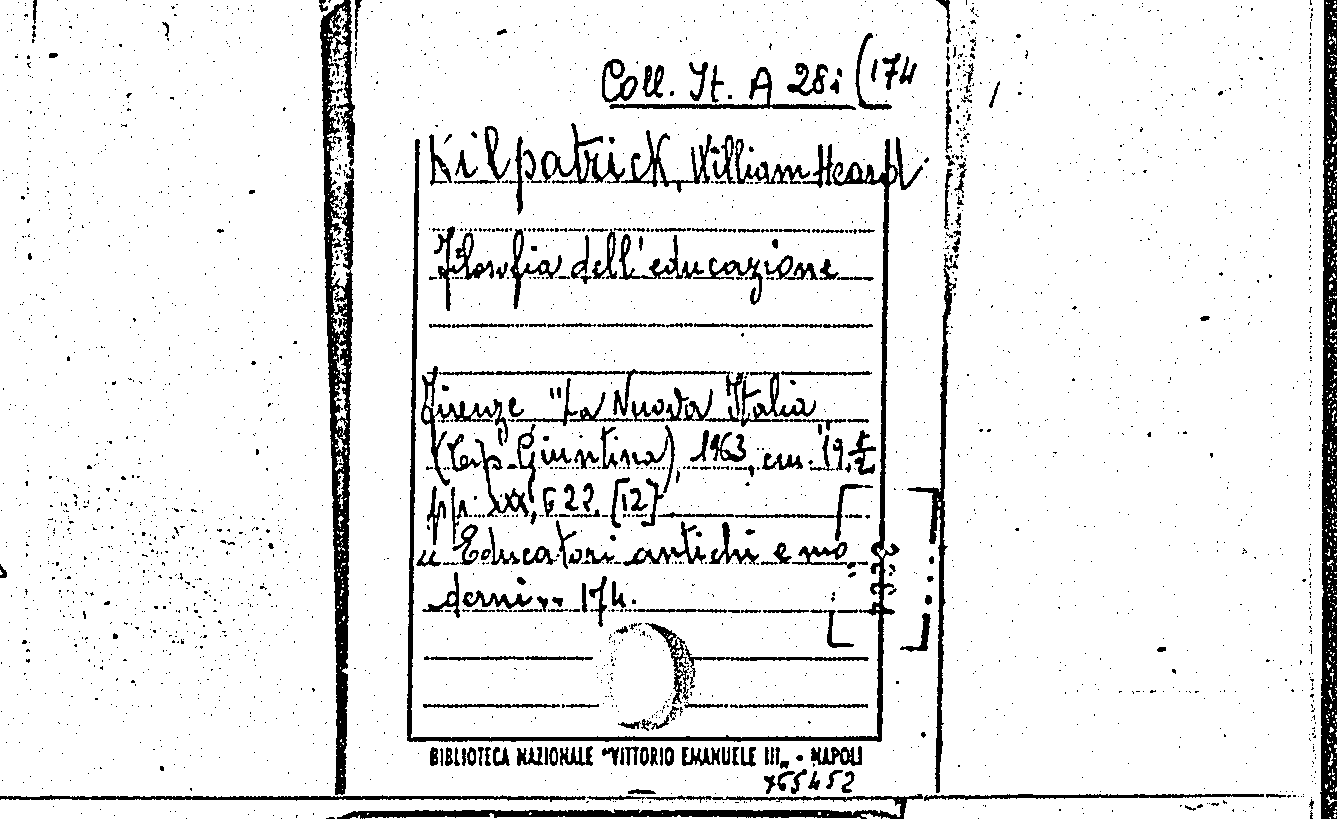 Coll. It. A 28i (174
Kilpatrick, William Heard
Filosofia dell'educazione
Firenze "La Nuova Italia"
(Tip. Giuntina), 1963, cm. 19.½
pp. XXX, 622. [12]
"Educatori antichi e mo
derni" 174.
BIBLIOTECA NAZIONALE "VITTORIO EMANUELE III" - NAPOLI
755452